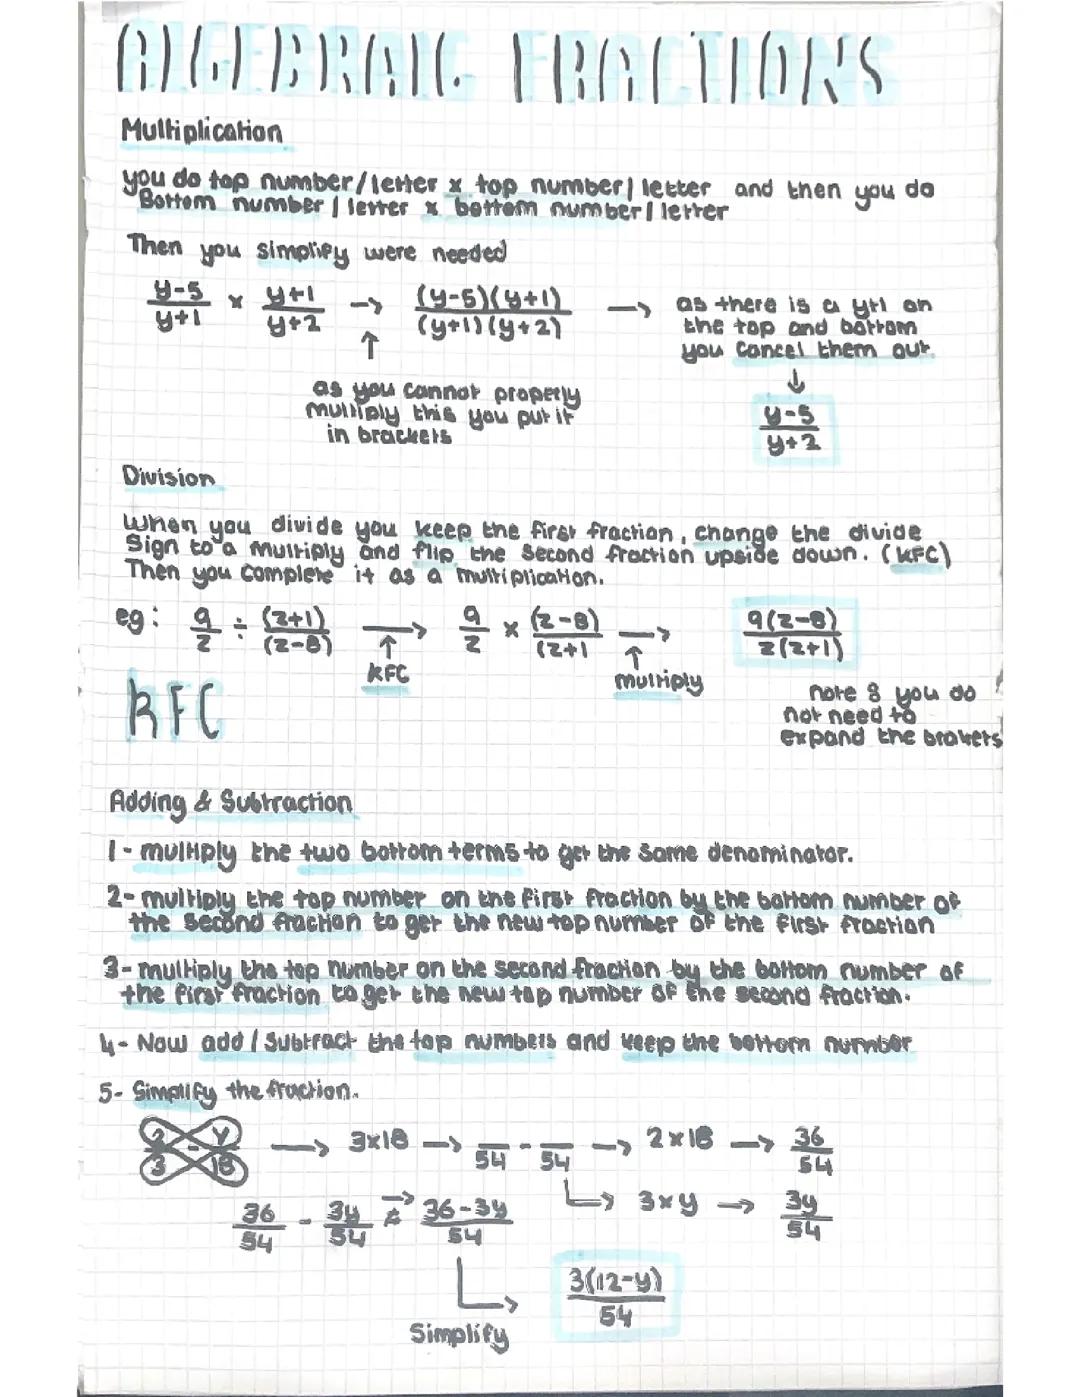 ALGEBRAIC FRACTIONS
Multiplication
you do top number/letter x top number/letter and then you do
Bottom number/letter x bottom number/letter
Then you simplify were needed
y-5/y+1 x y+1/y+2 → (y-5)(y+1)/(y+1)(y+2) → as there is a y+1 on
the top and bottom
you cancel them out.
↑
as you cannot properly
multiply this you put it
in brackets
↓
y-5/y+2
Division
When you divide you keep the first fraction, change the divide
Sign to a multiply and flip the second fraction upside down. (KFC)
Then you complete it as a multiplication.
eg: 9/z ÷ (z+1)/(z-8) → 9/z x (z-8)/(z+1 → 9(z-8)/z(z+1)
↑ KFC
↑ multiply
KFC
note: you do
not need to
expand the brakets
Adding & Subtraction
1- multiply the two bottom terms to get the same denominator.
2- multiply the top number on the first fraction by the bottom number of
the second fraction to get the new top number of the first fraction
3- multiply the top number on the second fraction by the bottom number of
the first fraction to get the new top number of the second fraction.
4- Now add/subtract the top numbers and keep the bottom number
5- Simplify the fraction.
2/3 - y/18 → 3x18 → /54 - /54 → 2x18 → 36/54
→ 3xy → 3y/54
36/54 - 3y/54 → 36-3y/54
Simplify
3(12-y)/54